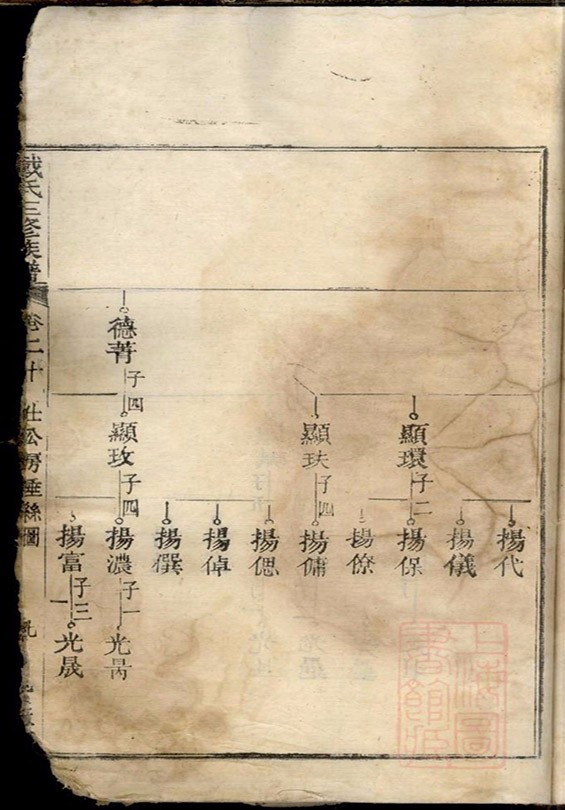 揚代
揚儀
顯環
子二
揚保
揚僚
顯玞
子四
揚傭
揚偲
揚倬
揚僎
德菁
子四
顯玫
子四
揚濃
子一
光昺
揚富
子三
光晟
戴氏三修族譜
卷二十
仕公房垂絲圖
上海圖書館藏